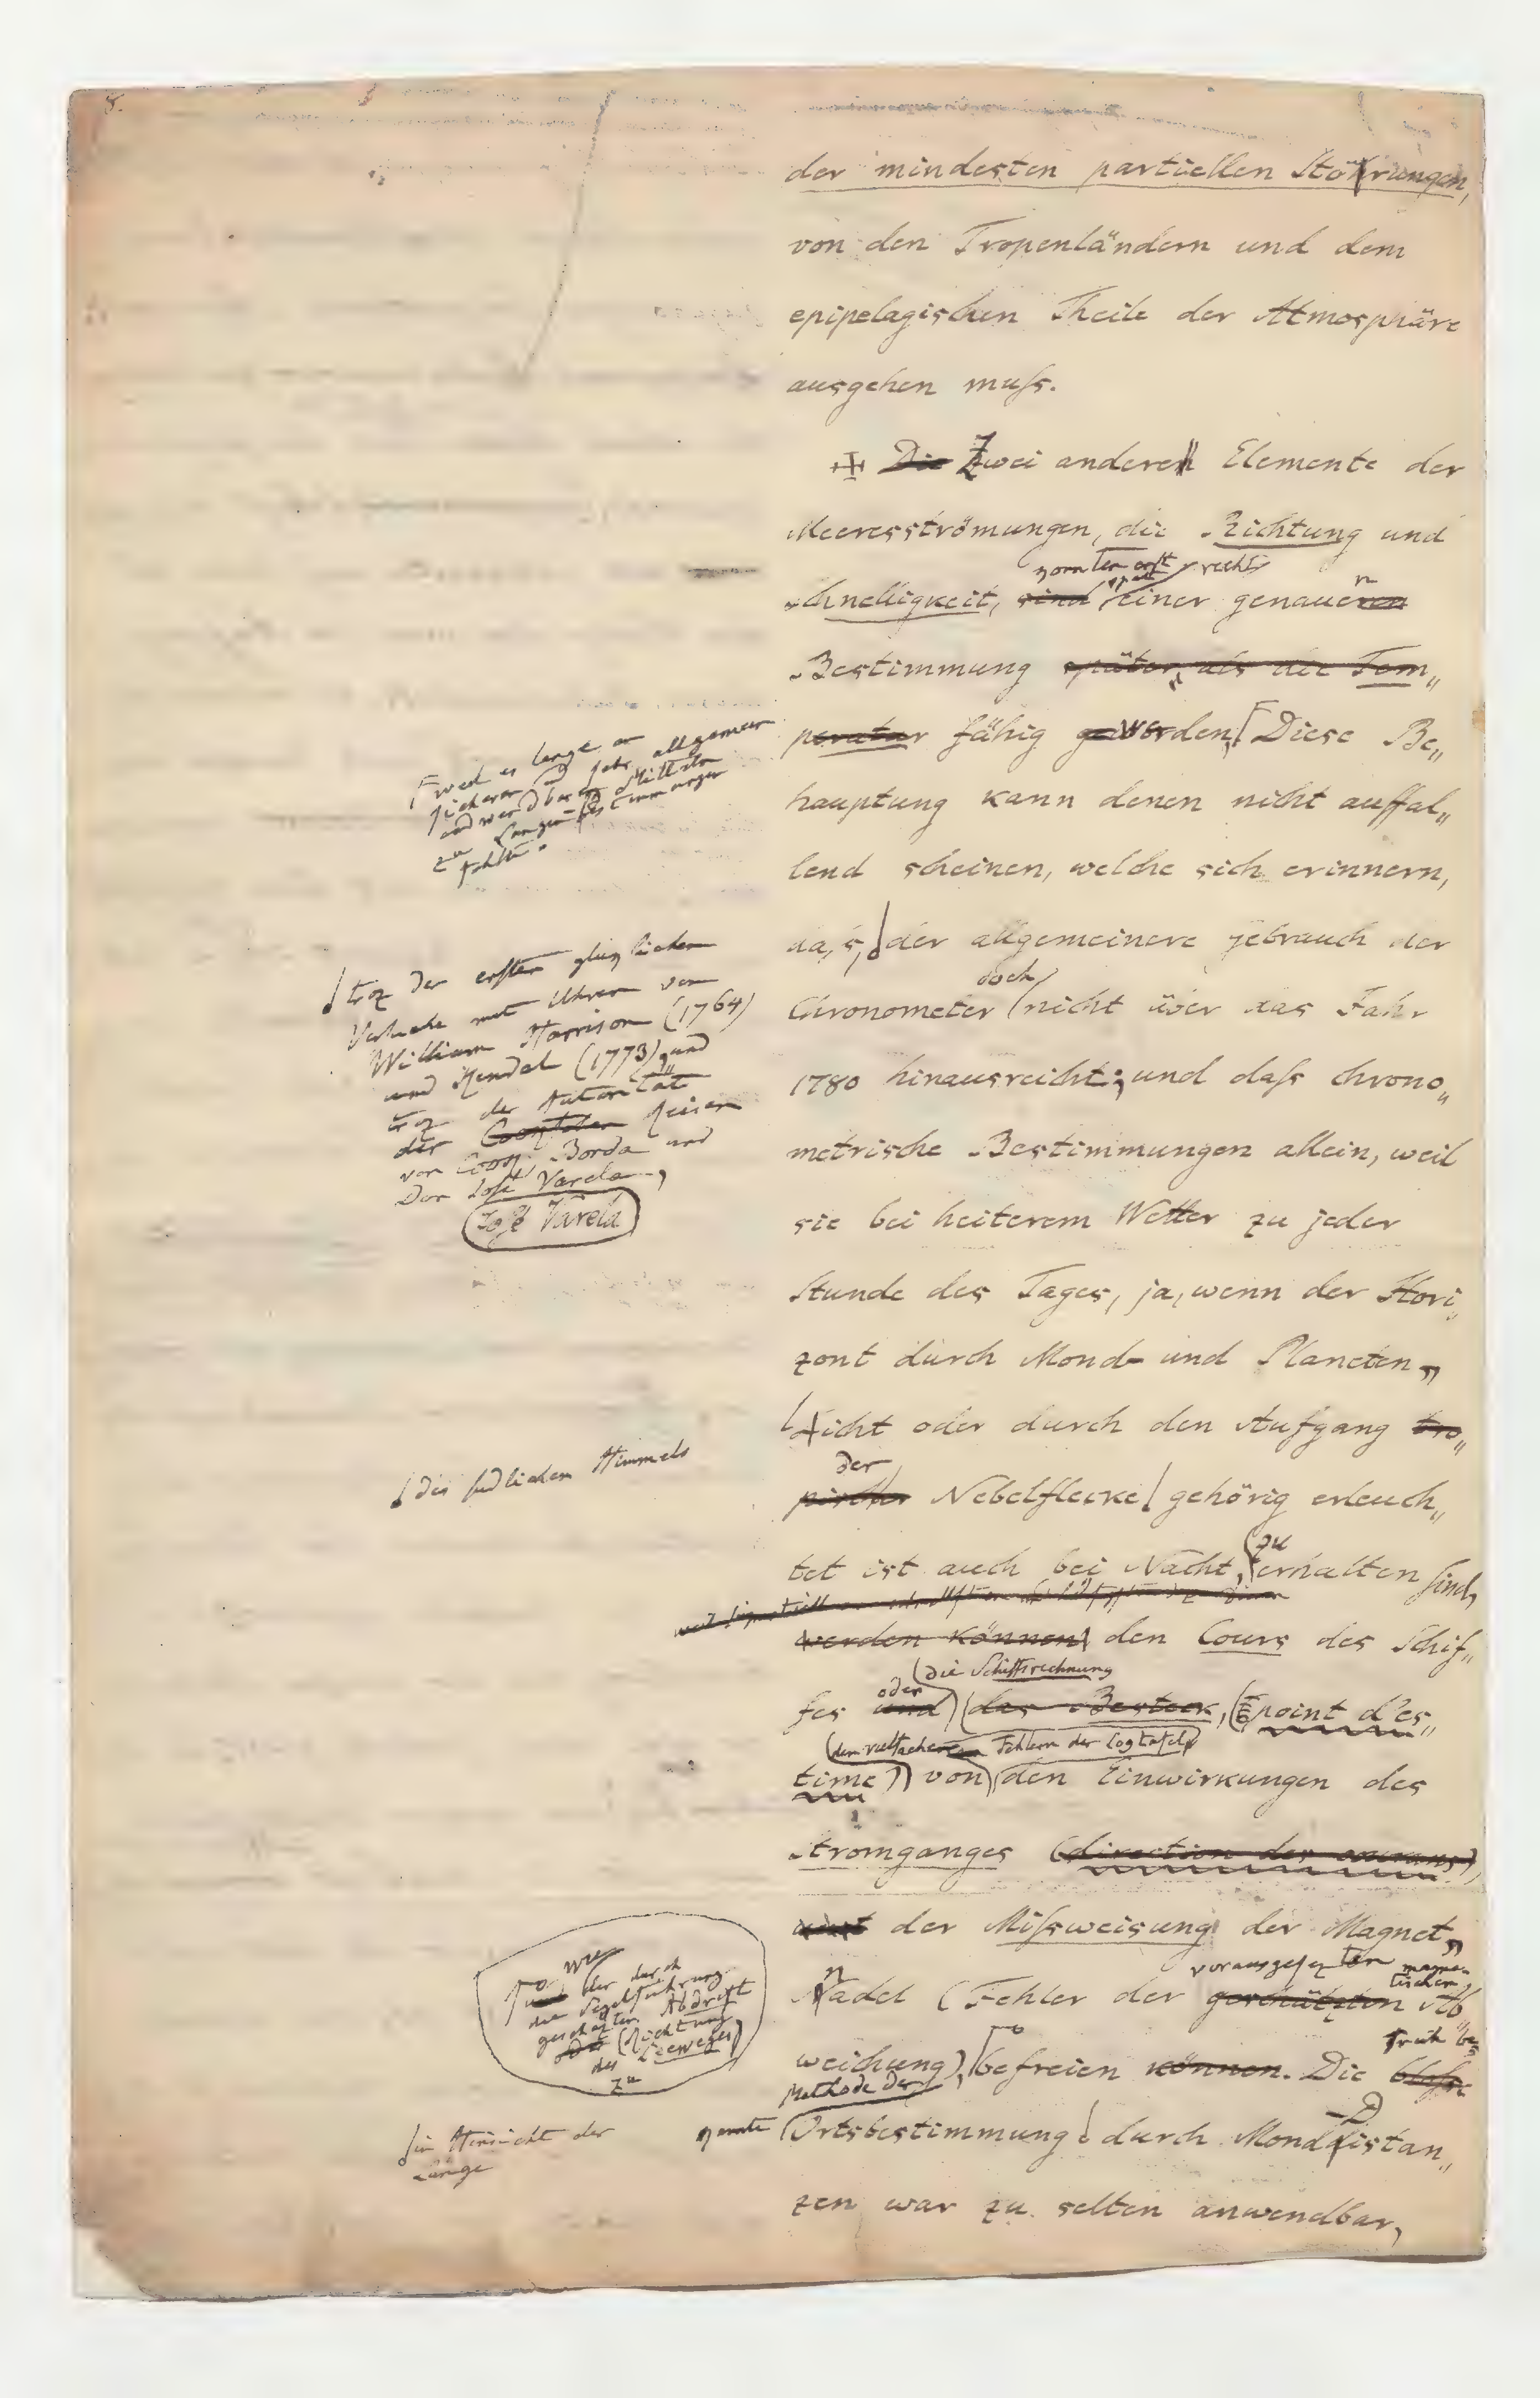 8.
der mindesten partiellen Störungen,
von den Tropenländern und dem
epipelagischen Theile der Atmosphäre
ausgehen muſs.
Die Zwei anderen Elemente der
Meeresströmungen, die Richtung und
konnten erst recht
Schnelligkeit, sind einer genaueren
n
Bestimmung später, als die Tem„
peratur fähig geworden, Diese Be„
hauptung kann denen nicht auffal„
lend scheinen, welche sich erinnern,
daſs, der allgemeinere gebrauch der
doch
Chronometer nicht über das Jahr
1780 hinausreicht; und daſs chrono„
metrische Bestimmungen allein, weil
sie bei heiterem Wetter zu jeder
Stunde des Tages, ja, wenn der Hori„
zont durch Mond- und Planeten„
licht oder durch den Aufgang tro„
der
pischer Nebelflecke gehörig erleuch„
tet ist auch bei Nacht, zu erhalten sind,
werden können den Cours des Schif„
oder (die Schiffsrechnung
fes und) (das Besteck, (point d'es„
(den vielfachen Fehlern der Logtafel)
time)) von) (den Einwirkungen des
Stromganges (direction des courans),
der Miſsweisung der Magnet„
vorausgesezten magne-
tischen
Nadel (Fehler der geschätzten Ab
früh be
weichung), befreien können. Die bloſse
Methode der
genaute Ortsbestimmung durch Monddistan„
zen war zu selten anwendbar,
weil es lange an
sicheren und sehr allgemein
anwendbaren Mitteln
zu Längenbestimmungen
fehlte.
troz der ersten glücklichen
Versuche mit Uhren von
William Harrison (1764)
und Kendal (1773) und
troz der Autorität
der Reisen
von Cook, Borda und
Don José Varela,
José Varela
des südlichen Himmels
wie
und der durch
die Segelführung
geschaften Abdrift
oder (Richtung
des Leeweges)
zu
in Hinsicht der
Länge